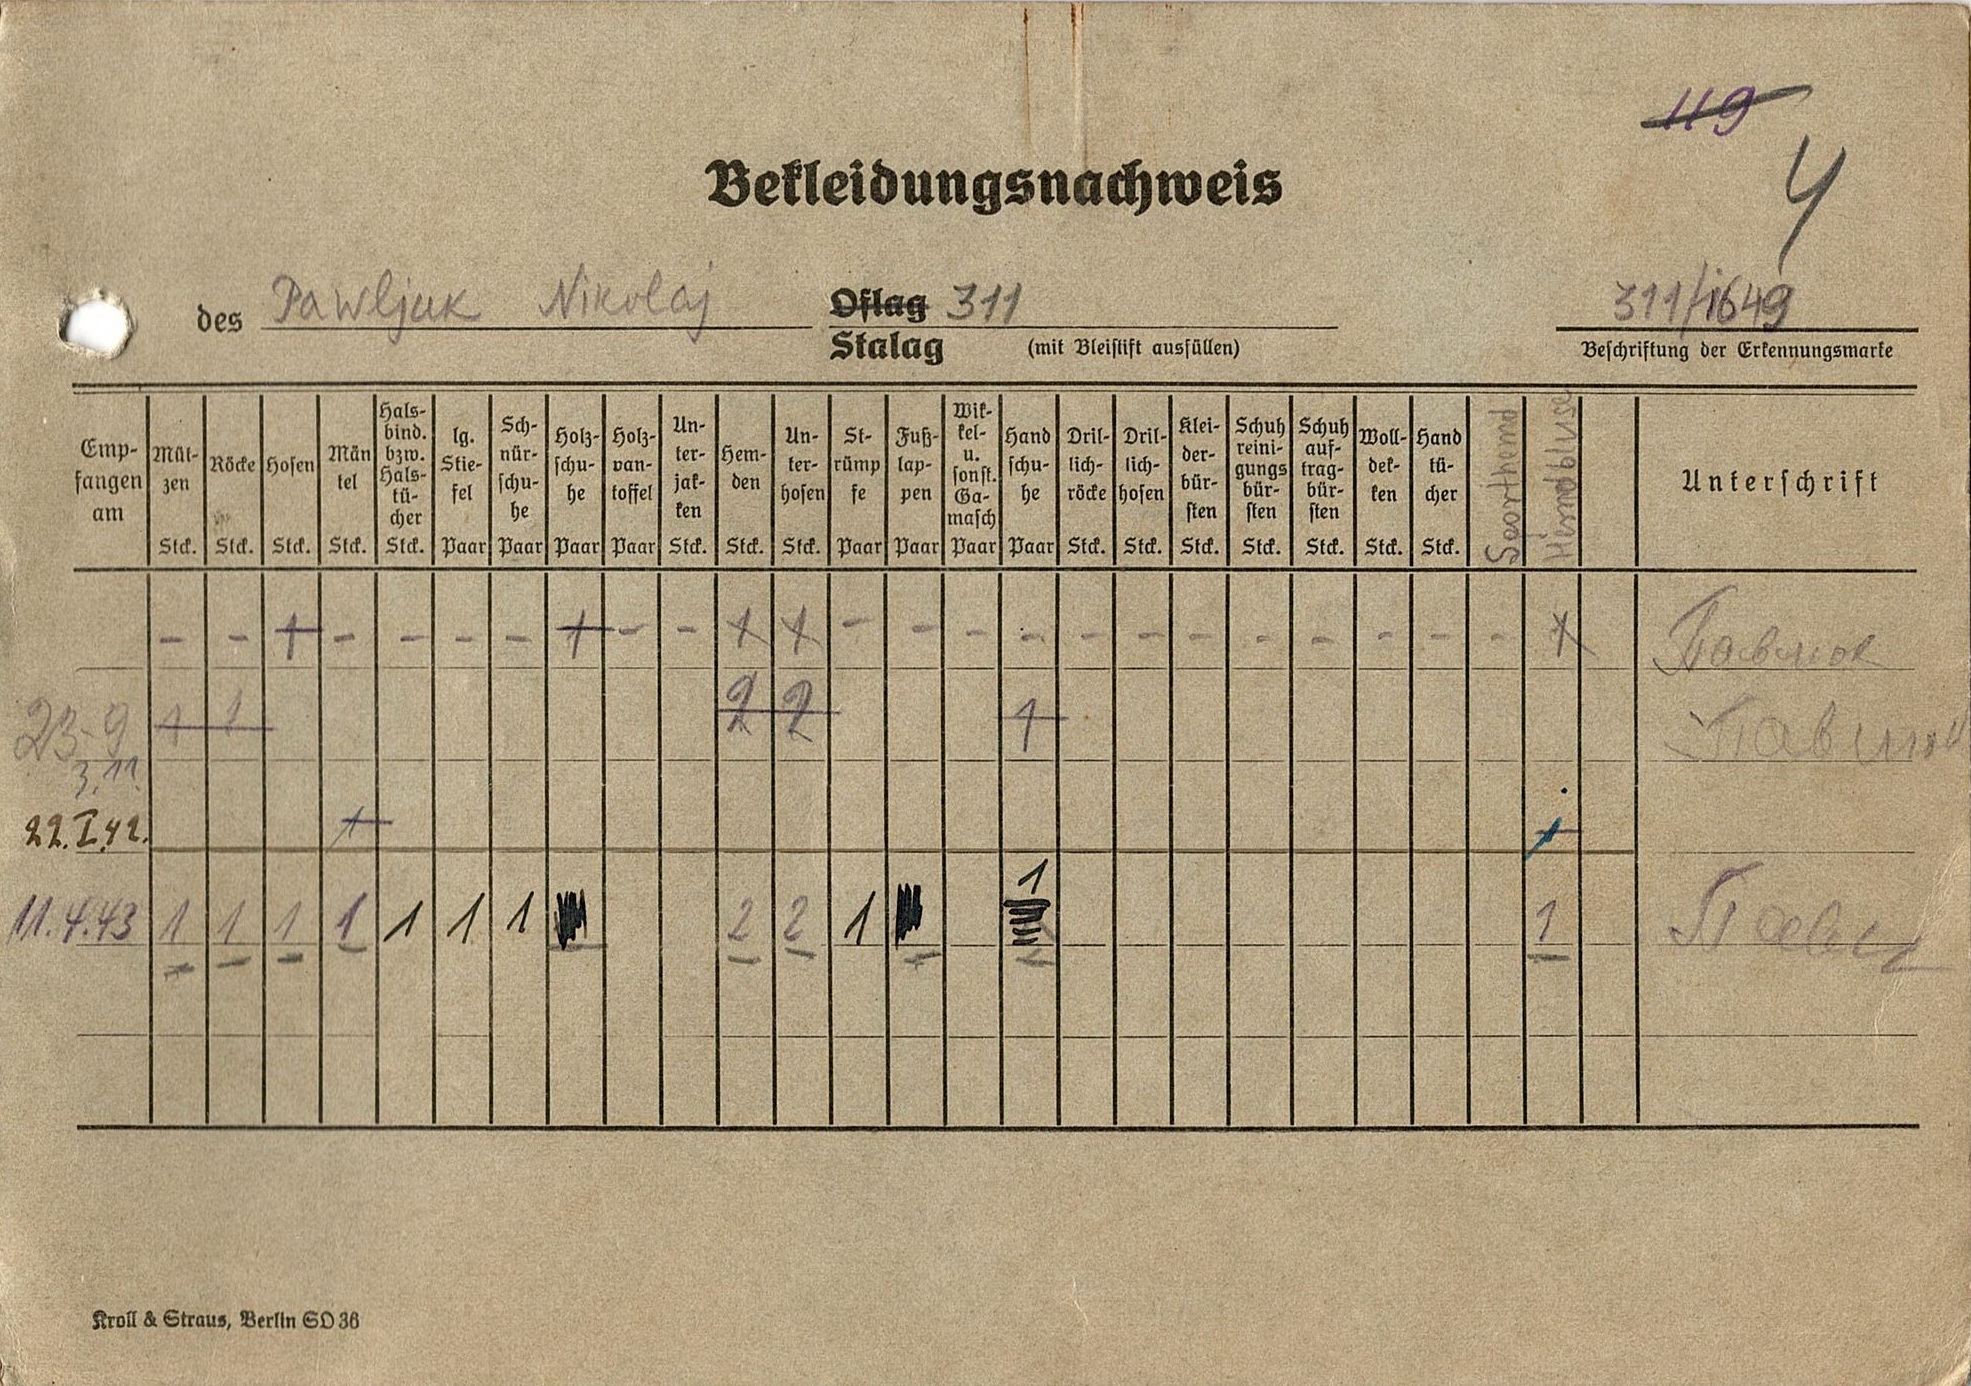 119
4
Bekleidungsnachweis
des Pawljuk Nikolaj Oflag 311 311/1649
Stalag (mit Bleistift ausfüllen) Beschriftung der Erkennungsmarke
Empfangen am
Müt-zen Stck.
Röcke Stck.
Hosen Stck.
Män tel Stck.
Hals-bind. bzw. Hals-tü-cher Stck.
lg. Stie-fel Paar
Sch-nür-schu-he Paar
Holz-schu-he Paar
Holz-pan-toffel Paar
Un-ter-jak-ken Stck.
Hem-den Stck.
Un-ter-hosen Stck.
St-rümp fe Paar
Fuß-lap-pen Paar
Wik-kel-u. sonst. Ga-masch Paar
Hand schu-he Paar
Dril-lich-röcke Stck.
Dril-lich-hosen Stck.
Klei-der-bür-sten Stck.
Schuh reini-gungs bür-sten Stck.
Schuh auf-trag-bür-sten Stck.
Woll-dek-ken Stck.
Hand tü-cher Stck.
Sporthemd
Hemdbluse
Unterschrift
- - 1 - - - - 1 - - 1 1 - - - - - - - - - - - - 1 Павлюк
23-9 1 1 2 2 1
3.11.
22.I.42. 1 1
11.4.43 1 1 1 1 1 1 1 2 2 1 1 1
Kroll & Straus, Berlin SO 36